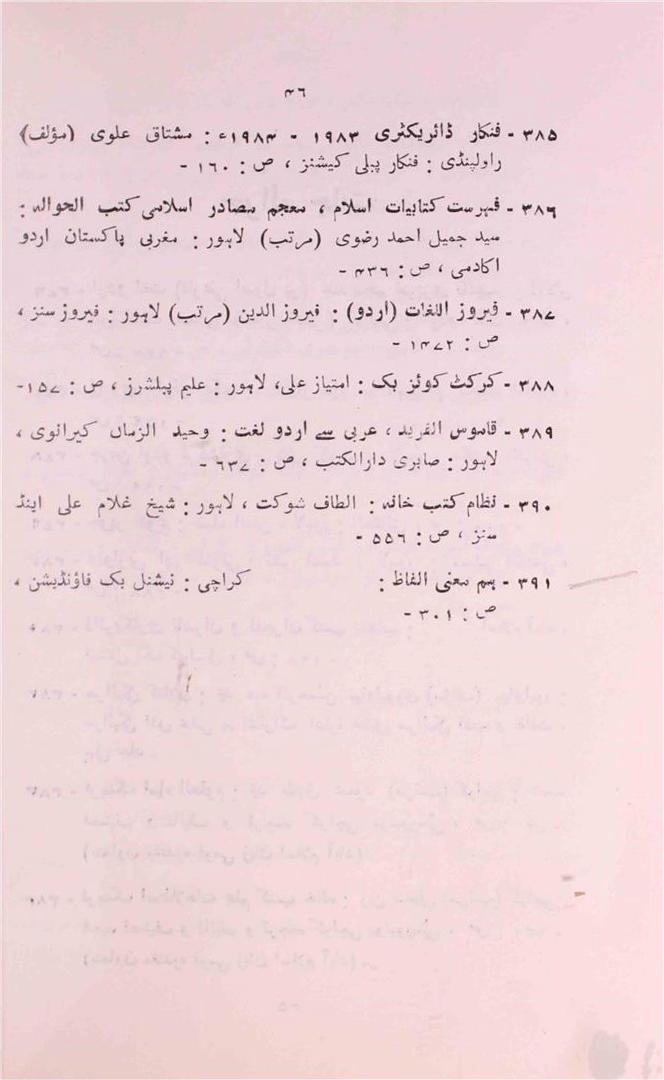 ۴٦
۳۸۵ - فنکار ڈائریکٹری ۱۹۸۳ - ۱۹۸۴ء : مشتاق علوی (مؤلف)
راولپنڈی : فنکار پبلی کیشنز ، ص : ۱٦۰ -
۳۸٦ - فہرست کتابیات اسلام ، معجم مصادر اسلامی کتب الحوالہ :
سید جمیل احمد رضوی (مرتب) لاہور : مغربی پاکستان اردو
اکادمی ، ص : ۴۳٦ -
۳۸۷ - فیروز اللغات (اردو) : فیروز الدین (مرتب) لاہور : فیروز سنز ،
ص : ۱۴۷۲ -
۳۸۸ - کرکٹ کوئز بک : امتیاز علی، لاہور : علیم پبلشرز ، ص : ۱۵۷-
۳۸۹ - قاموس الفرید ، عربی سے اردو لغت : وحید الزماں کیرانوی ،
لاہور : صابری دارالکتب ، ص : ٦۳۷ -
۳۹۰ - نظام کتب خانہ : الطاف شوکت ، لاہور : شیخ غلام علی اینڈ
سنز ، ص : ۵۵٦ -
۳۹۱ - ہم معنی الفاظ : کراچی : نیشنل بک فاؤنڈیشن ،
ص : ۳۰۱ -